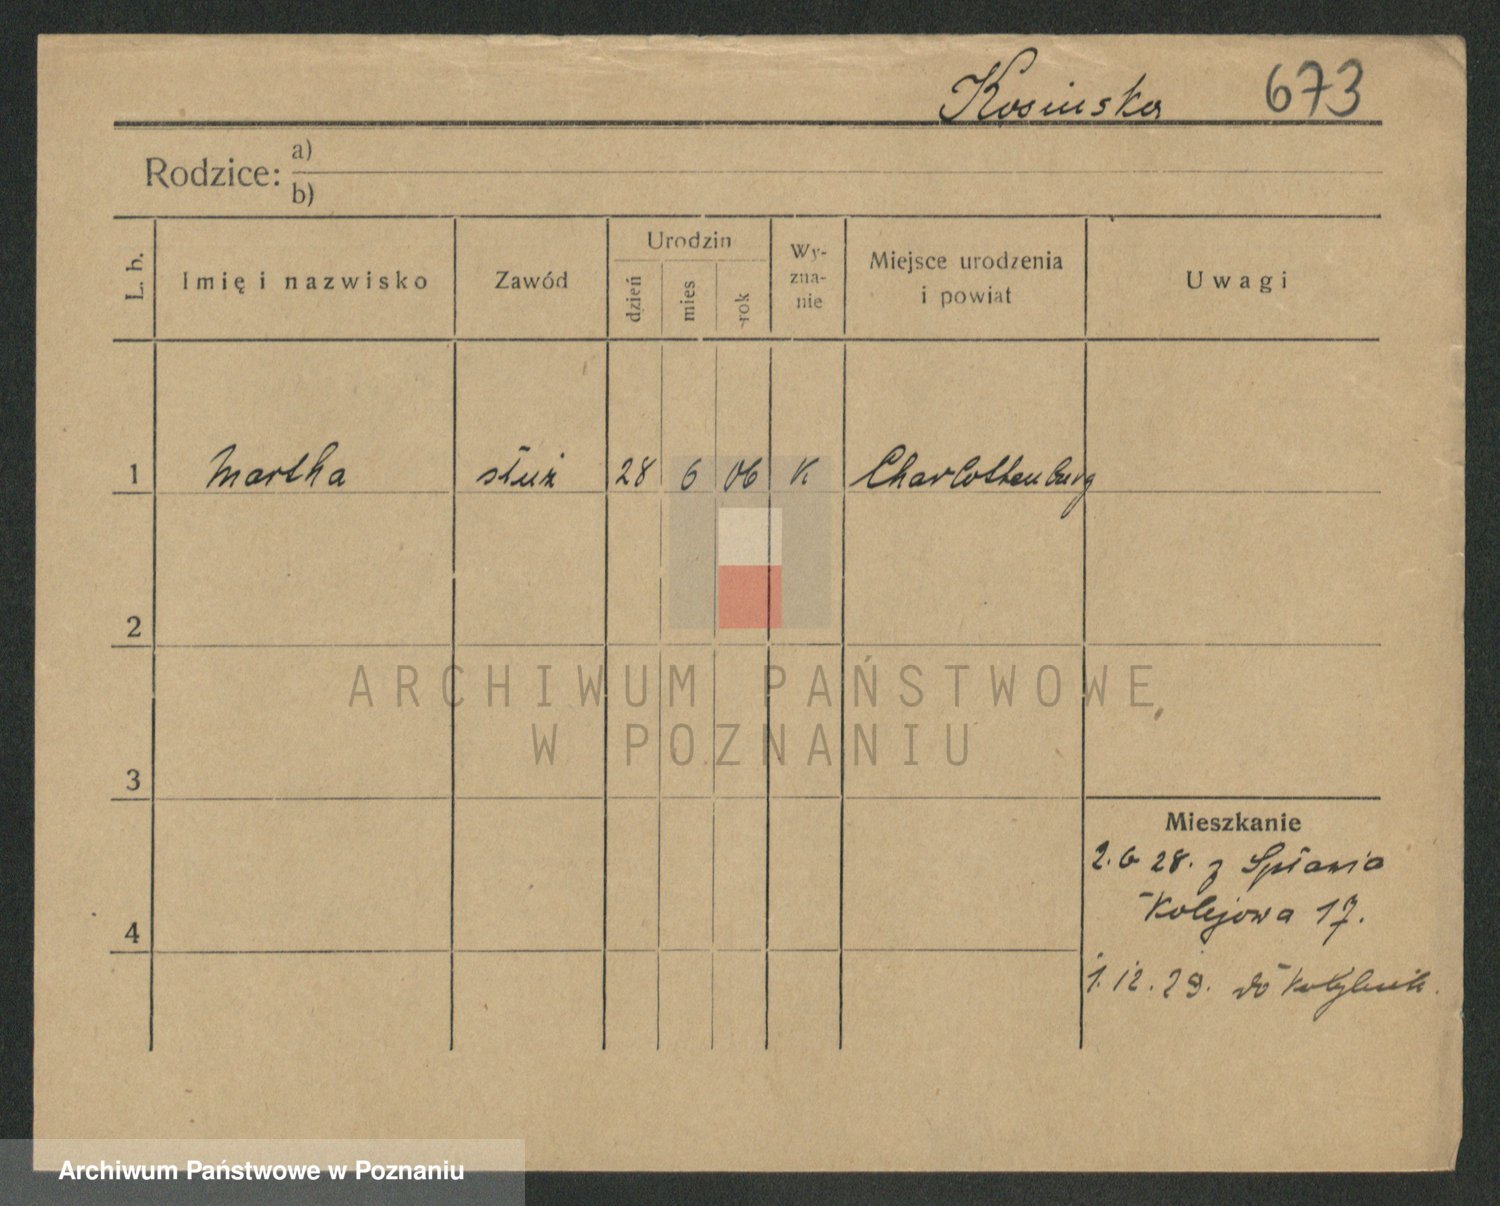 Kosinska 673
Rodzice: a)
b)
L. b. Imię i nazwisko Zawód Urodzin dzień mies rok Wy-zna-nie Miejsce urodzenia i powiat Uwagi
1 Martha służ 28 6 06 K Charlottenburg
2
ARCHIWUM PAŃSTWOWE
W POZNANIU
3
Mieszkanie
2. 6 28. z Spławia
Kolejowa 17.
4
1. 12. 29. do
Archiwum Państwowe w Poznaniu